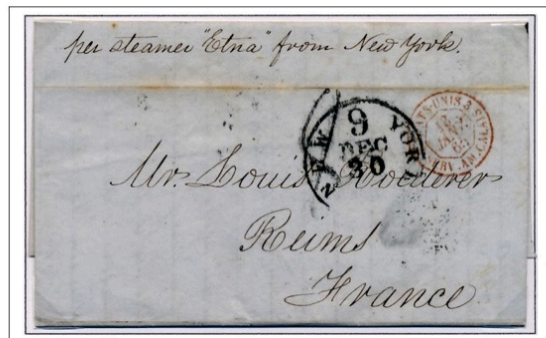 per steamer "Etna" from New York.
NEW YORK
9
DEC
30
Mr. Louis Roederer
Reims
France